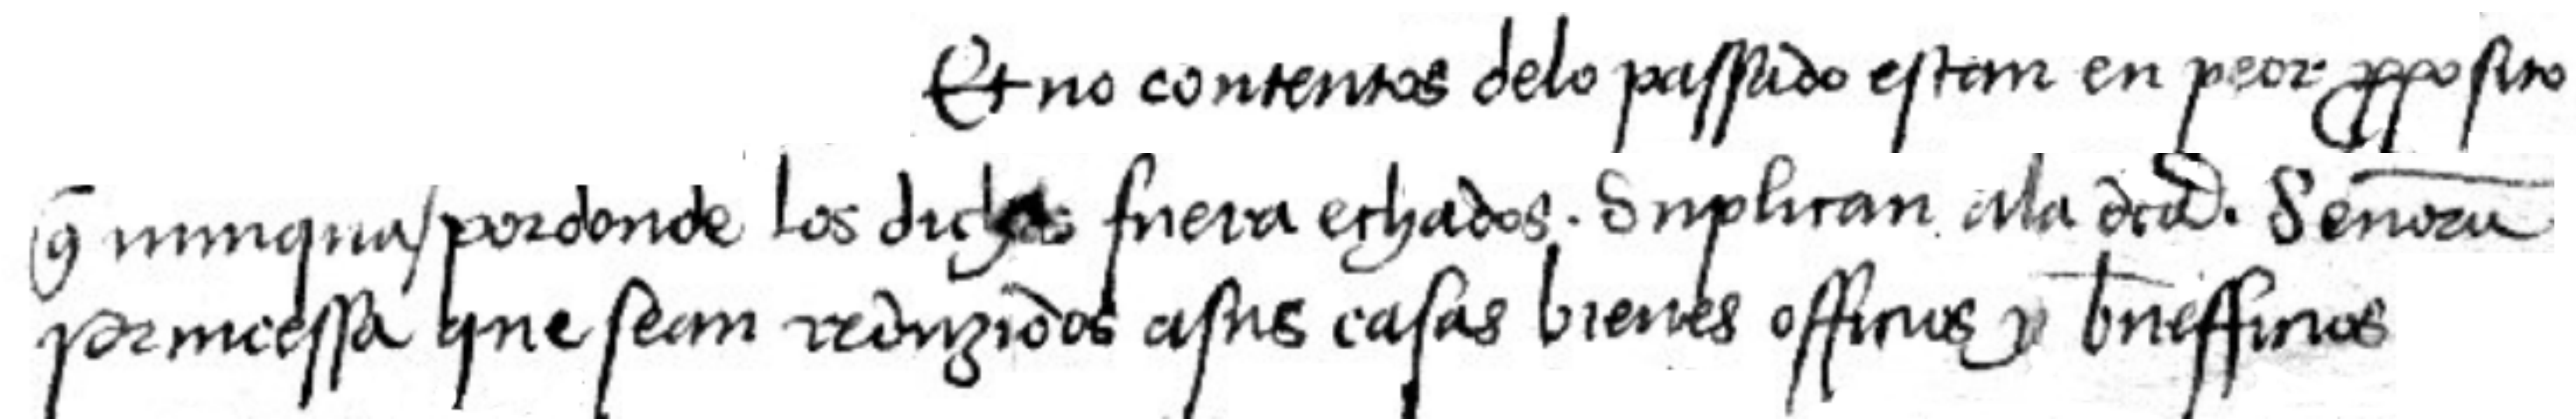 Et no contentos delo passado estan en peor proposito
q̄ nunqua / por donde los dichos fuera echados. Suplican ala dcã. Señora
princessa que sean reduzidos asus casas bienes officios y bn̄efficios